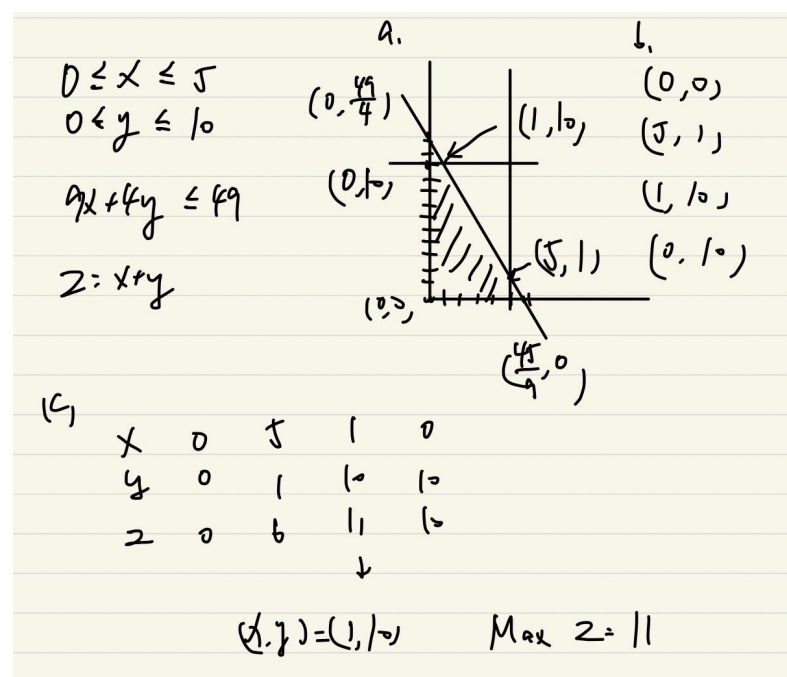 0 ≤ x ≤ 5
0 ≤ y ≤ 10
9x+4y ≤ 49
z = x+y
a.
(0, 49/4)
(1, 10)
(0, 10)
(5, 1)
(0,0)
(45/9, 0)
b.
(0, 0)
(5, 1)
(1, 10)
(0, 10)
(c)
x 0 5 1 0
y 0 1 10 10
z 0 6 11 10
↓
(x, y) = (1, 10) Max z = 11